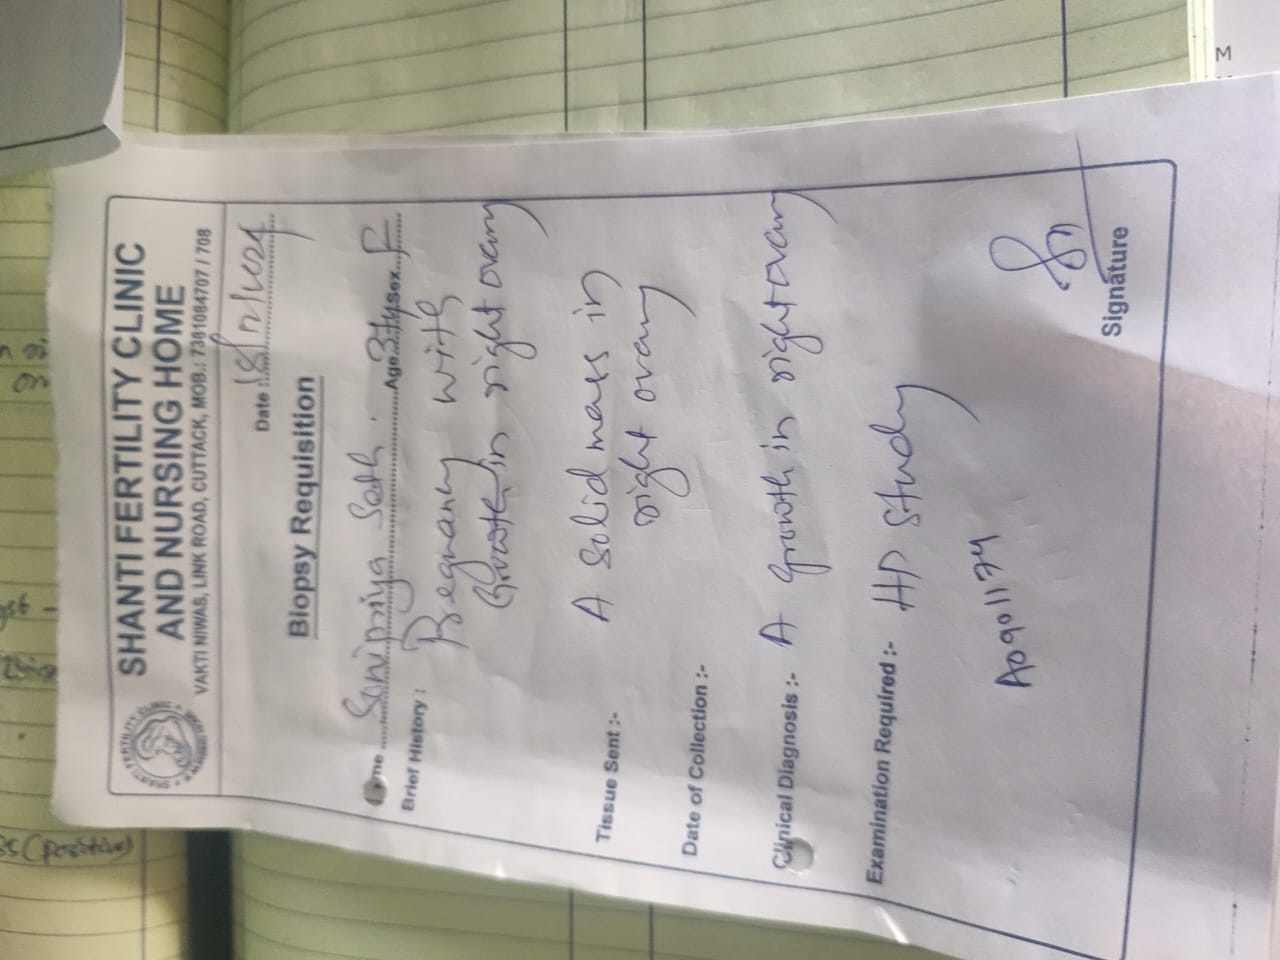 SHANTI FERTILITY CLINIC
AND NURSING HOME
VAKTI NIWAS, LINK ROAD, CUTTACK, MOB.: 7381084707 / 708
Date :
Biopsy Requisition
Age 34y Sex F
Brief History : Pregnancy with
Growth in right ovary
Tissue Sent :- A solid mass in
right ovary
Date of Collection :-
Clinical Diagnosis :- A growth in right ovary
Examination Required :- HP Study
A0901174
Signature
(positive)
M